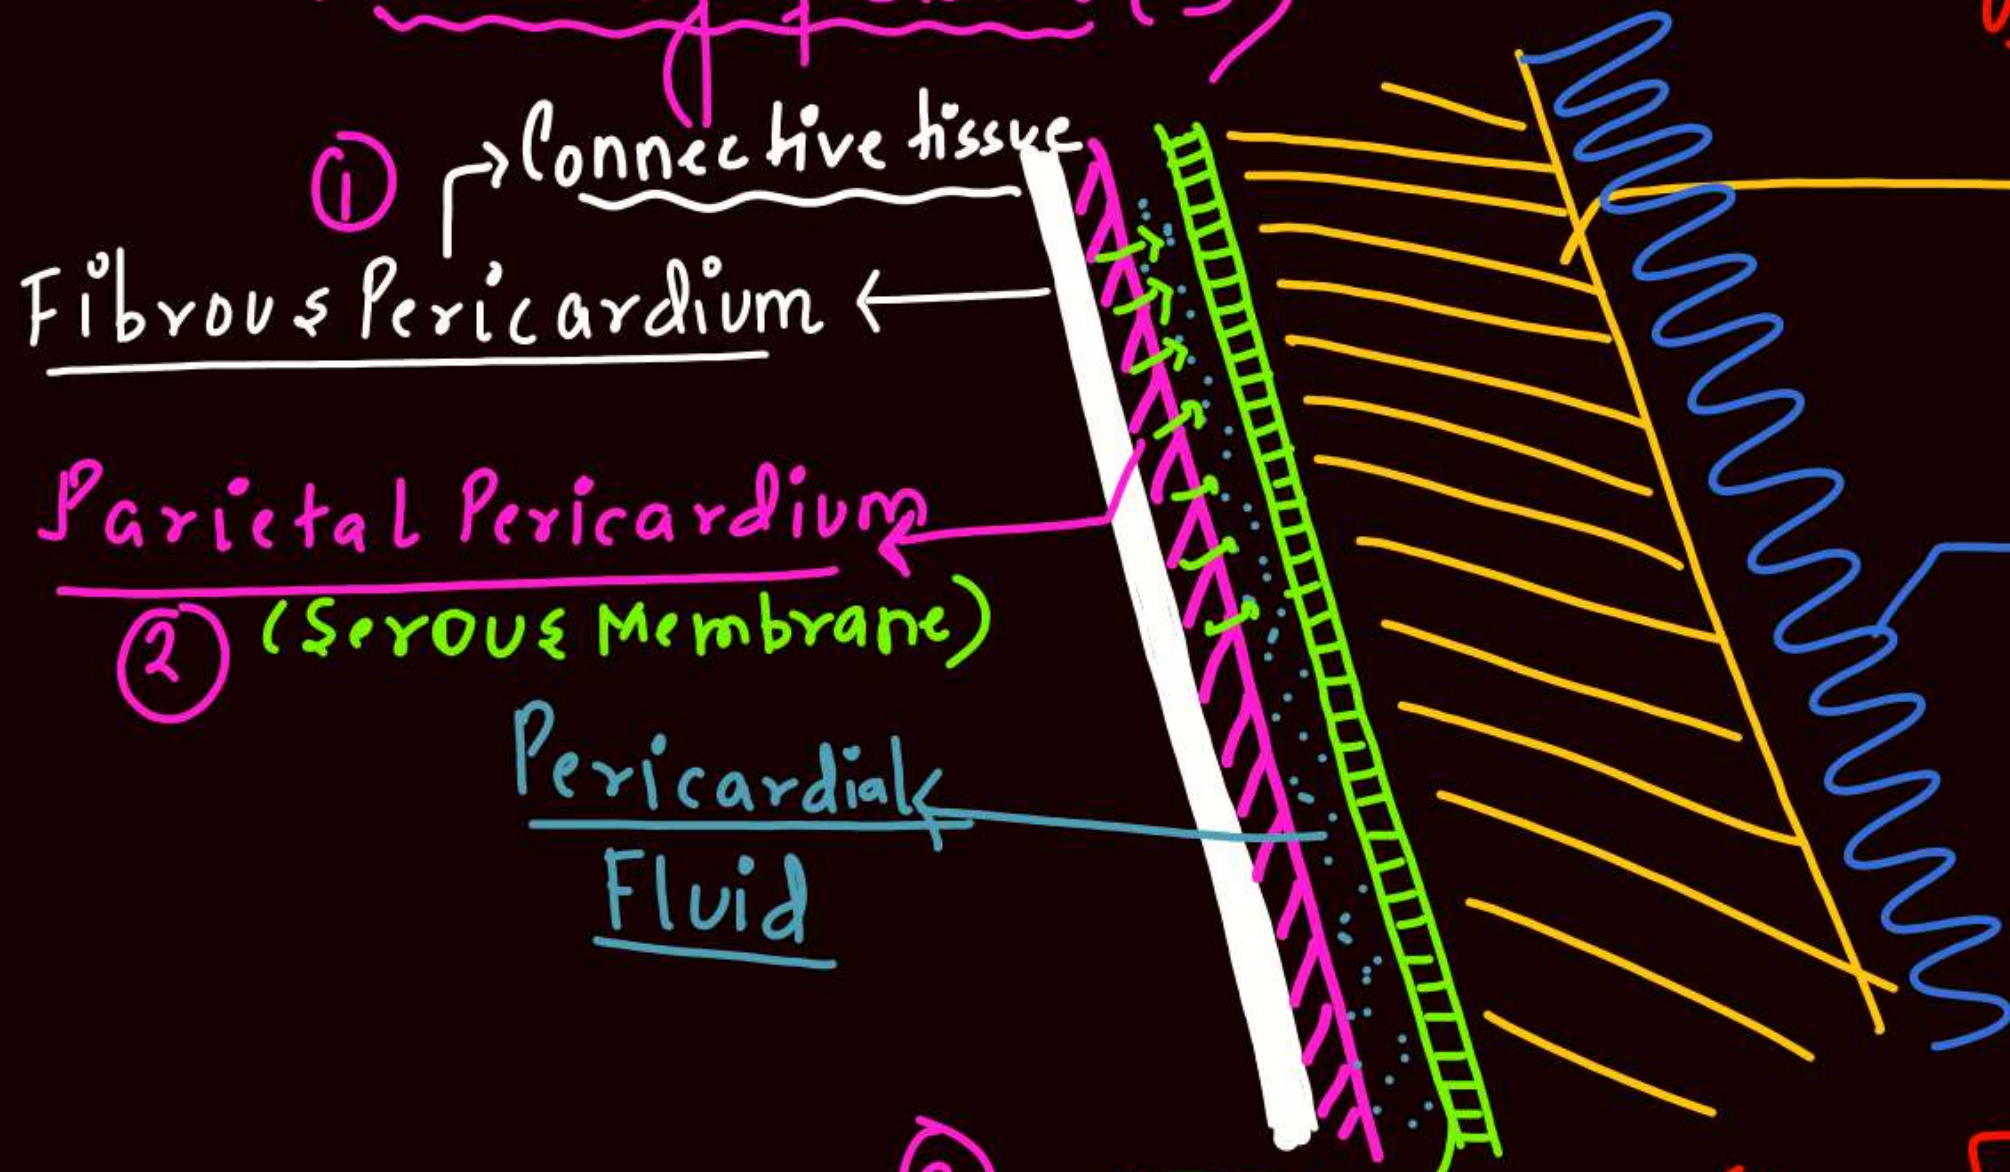 ①
→ Connective tissue
Fibrous Pericardium ←
Parietal Pericardium
② (Serous Membrane)
Pericardial
Fluid